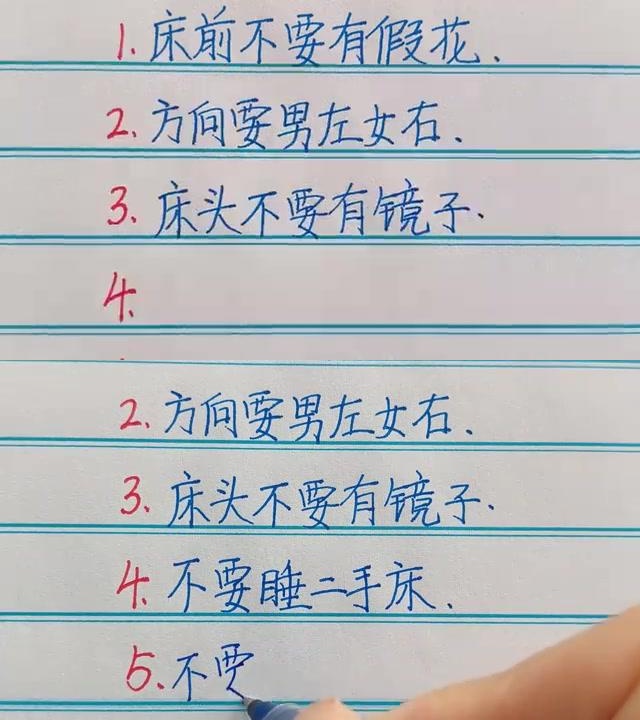 1. 床前不要有假花.
2. 方向要男左女右.
3. 床头不要有镜子.
4.
2. 方向要男左女右.
3. 床头不要有镜子.
4. 不要睡二手床.
5. 不要